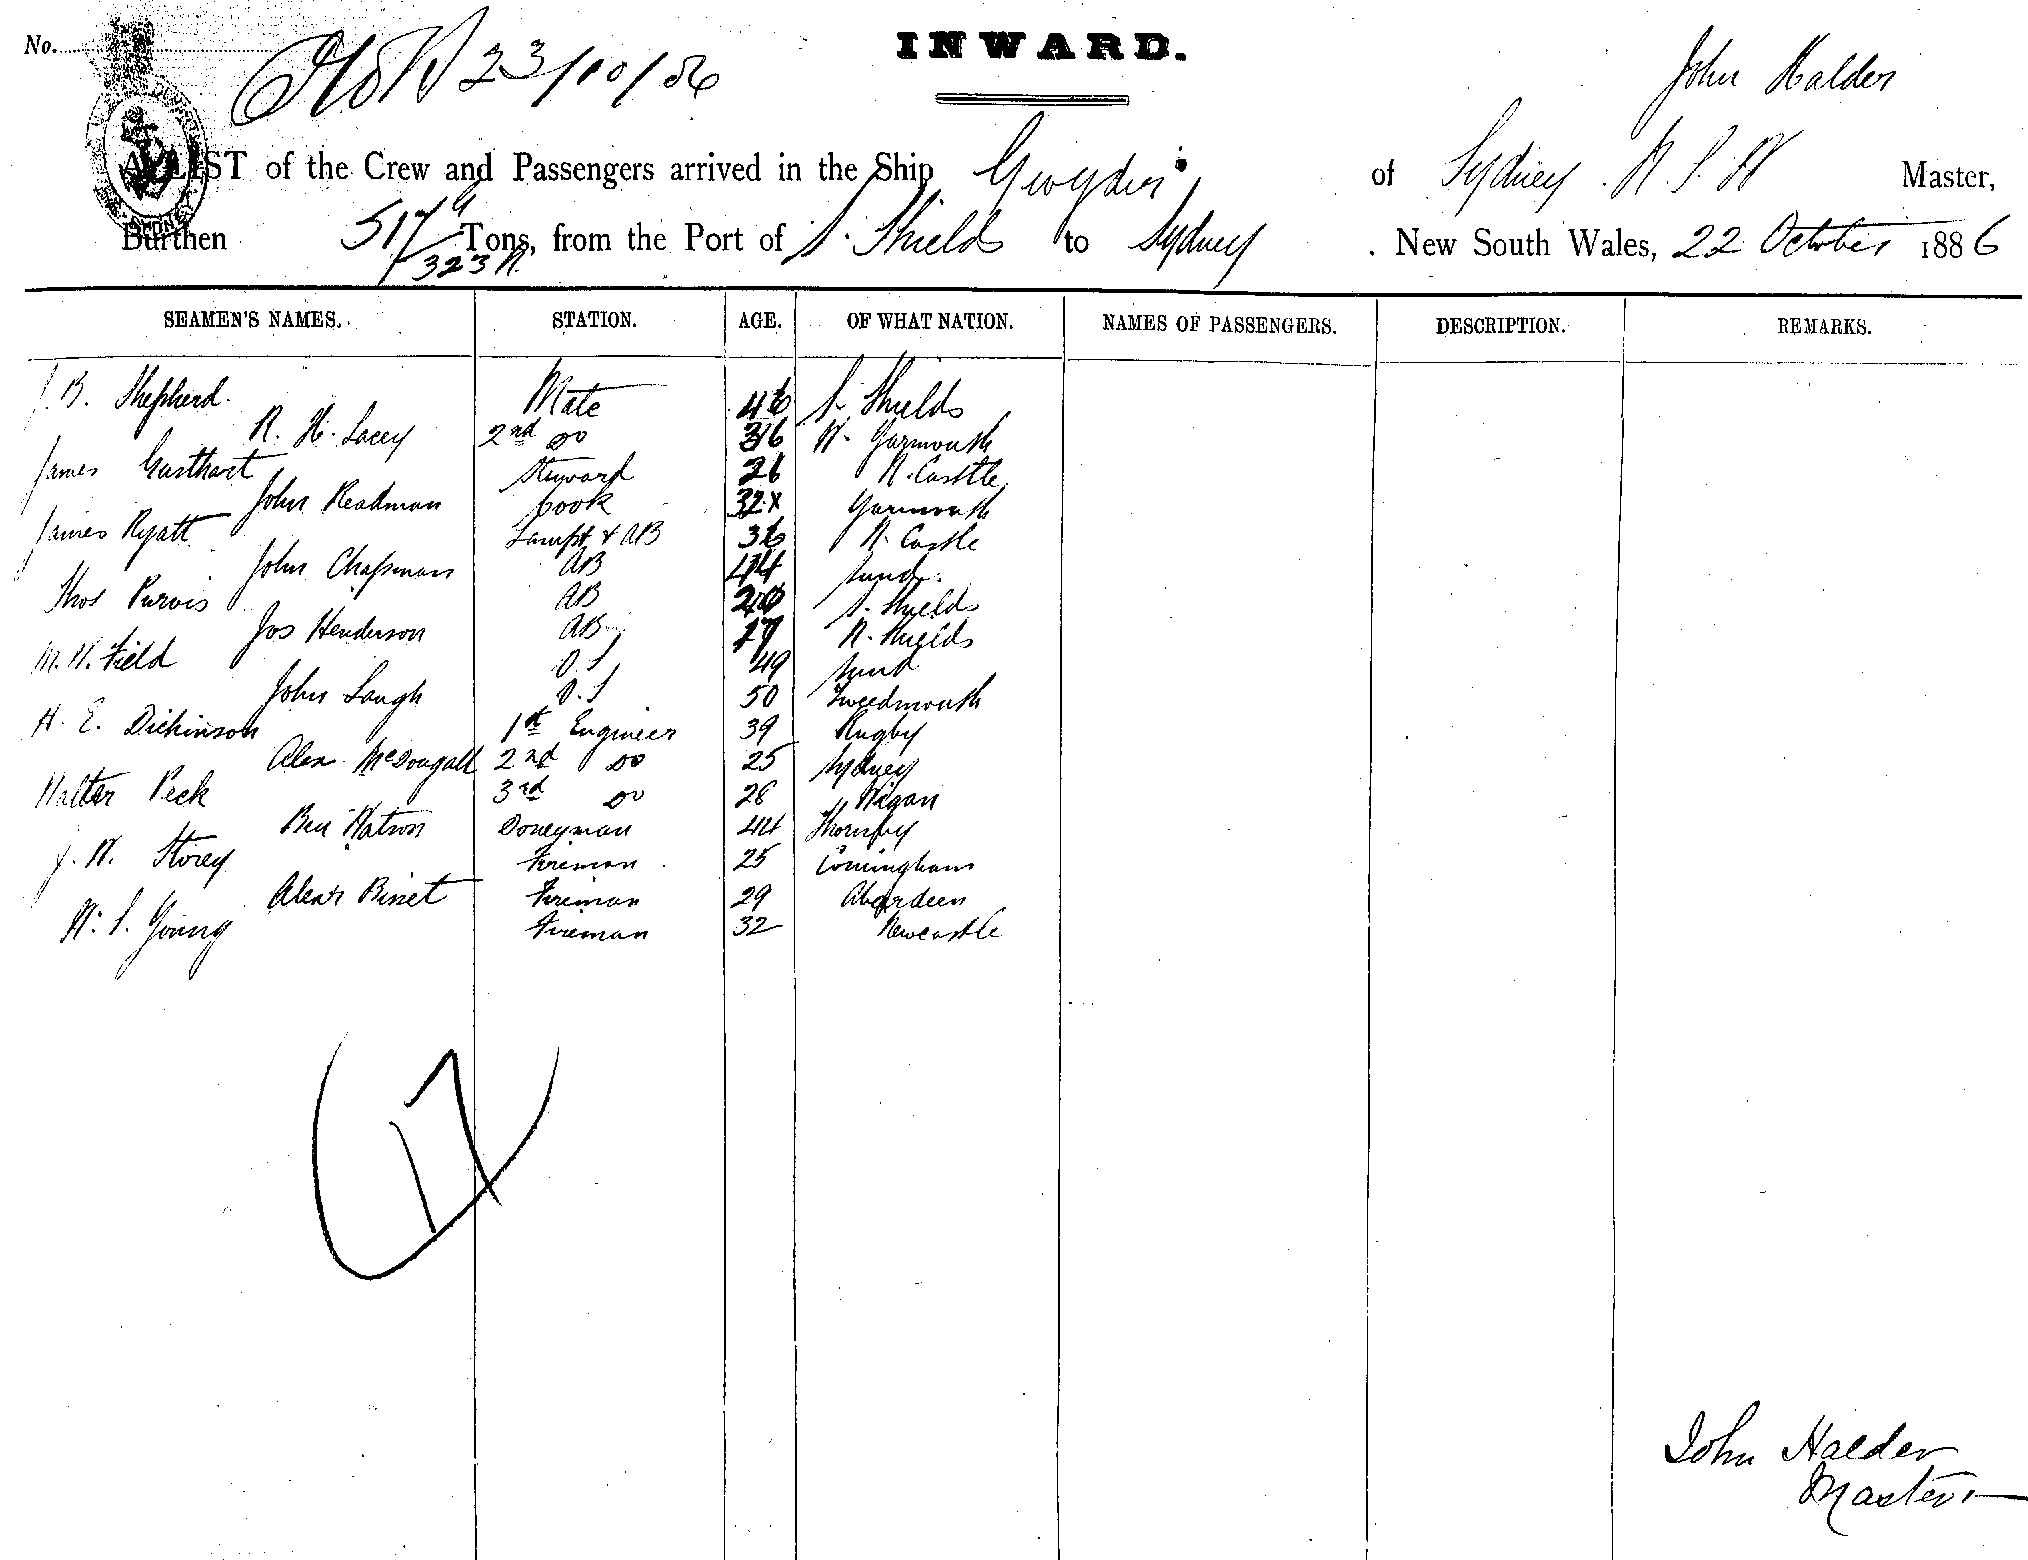 No. 23/10/86
INWARD.
John Halder
A LIST of the Crew and Passengers arrived in the Ship Gwydir of Sydney N. S. W Master,
Burthen 517 g Tons, from the Port of S. Shields to Sydney . New South Wales, 22 October 1886
323 N.
SEAMEN'S NAMES. STATION. AGE. OF WHAT NATION. NAMES OF PASSENGERS. DESCRIPTION. REMARKS.
J. B. Shepherd. Mate 46 S. Shields
R. H. Lacey 2nd Do 36 N. Yarmouth
James Gasthart Steward 26 N. Castle
John Readman Cook 32 Yarmouth
James Ryatt Lampt & AB 36 N. Castle
John Chapman AB 44 Sund.
Thos Purvis AB S. Shields
Jos Henderson AB 27 N. Shields
M. W. Field O.S 49 Sund
John Laugh O.S 50 Tweedmouth
H. E. Dickinson 1st Engineer 39 Rugby
Alex McDougall 2nd Do 25 Sydney
Walter Peck 3rd Do 28 Wigan
Ben Watson Doneyman 44 Thornley
J. W. Storey Fireman 25 Conningham
Alexr Binet Fireman 29 Aberdeen
W. S. Young Fireman 32 Newcastle
17
John Halder
Master